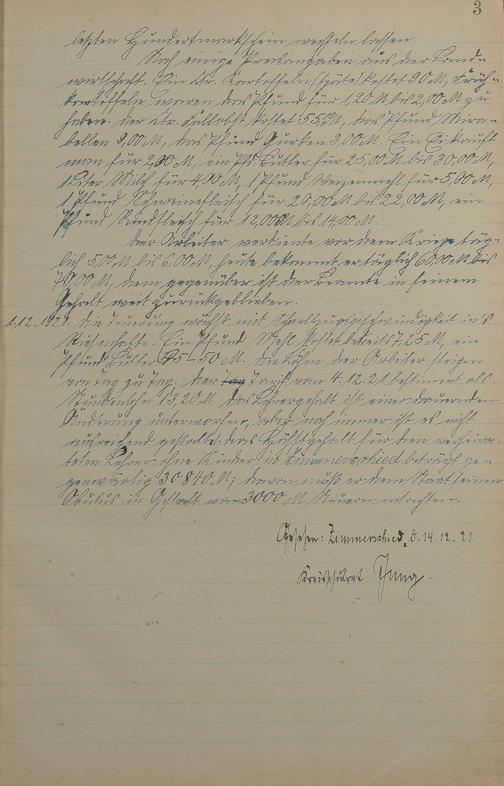 3
letzten Hundertmarkschein wechseln lassen.
Noch einige Preisangaben aus der Land-
wirtschaft. Ein Ztr. Kartoffeln (späte) kostet 90 M, Früh-
kartoffeln waren das Pfund für 1,20 M bis 2,00 M zu
haben. Der Ztr. Fallobst kostet 55 M, das Pfund Mira-
bellen 9,00 M, das Pfund Gurken 3,00 M. Ein Ei kauft
man für 2,00 M, ein Pfd Butter für 25,00 M bis 30,00 M,
1 Liter Milch für 4,00 M, 1 Pfund Weizenmehl für 5,00 M,
1 Pfund Schweinefleisch für 20,00 M bis 22,00 M, ein
Pfund Rindfleisch für 12,00 M bis 14,00 M.
Der Arbeiter verdiente vor dem Kriege täg-
lich 5,00 M bis 6,00 M, heute bekommt er täglich 60,00 M bis
70,00 M, dem gegenüber ist der Beamte in seinem
Gehalt weit zurückgeblieben.
1.12.1921. Die Teuerung wächst mit Schnellzugsgeschwindigkeit in's
Riesenhafte. Ein Pfund Mehl kostet bereits 7,25 M, ein
Pfund Butter 45-50 M. Die Löhne der Arbeiter steigen
von Tag zu Tag. Der Tarif vom 4.12.21 bestimmt als
Stundenlohn 13,20 M. Das Lehrergehalt ist einer dauernden
Änderung unterworfen, aber noch immer ist es nicht
ausreichend gestaltet. Das Höchstgehalt für den verheira-
teten Lehrer ohne Kinder in Zimmerschied beträgt ge-
genwärtig 30840 M; davon muß er dem Staat seinen
Obulus in Gestalt von 3000 M Steuern entrichten.
Gesehen: Zimmerschied, d. 14.12.21.
Kreisschulrat Jung.